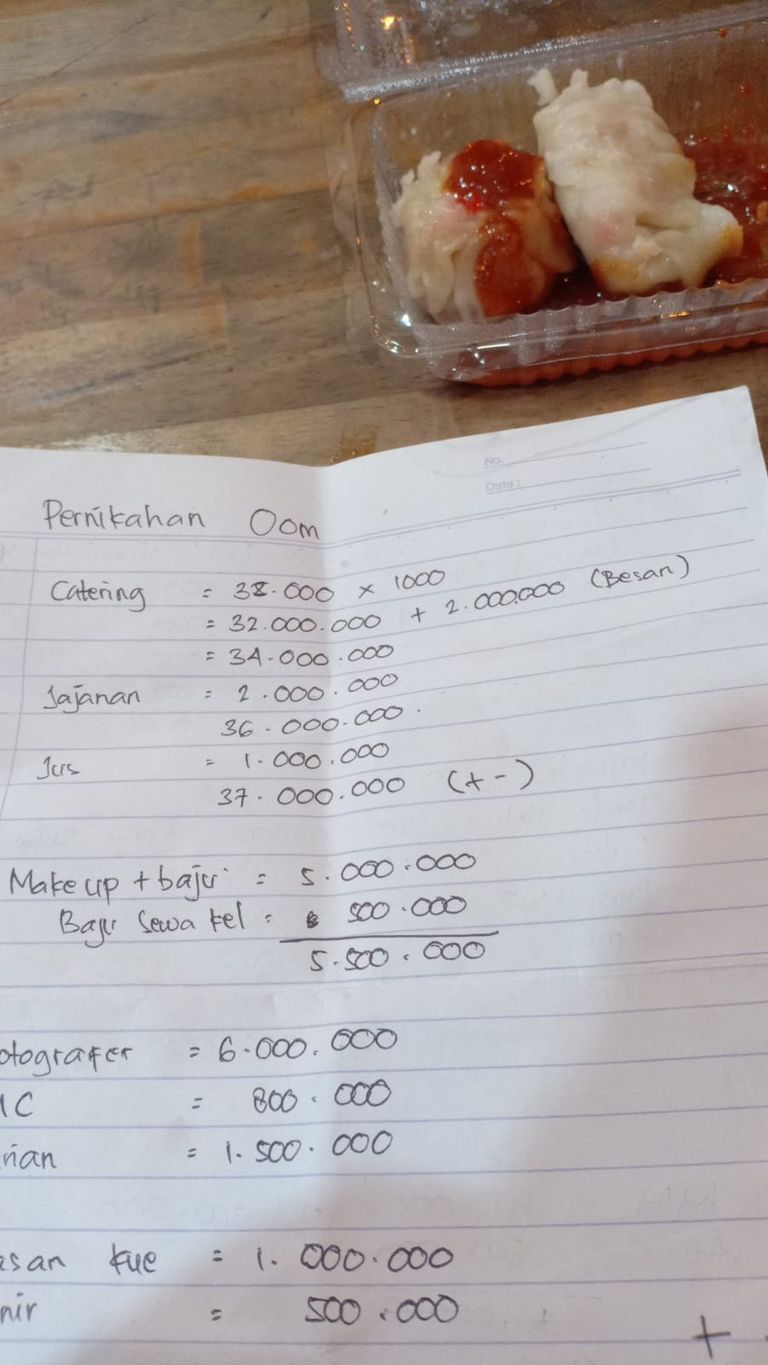 No.
Date:
Pernikahan Oom
Catering = 38.000 × 1000
= 32.000.000 + 2.000.000 (Besan)
= 34.000.000
Jajanan = 2.000.000
36.000.000.
Jus = 1.000.000
37.000.000 (+-)
Makeup + baju = 5.000.000
Baju Sewa kel = 500.000
5.500.000
otografer = 6.000.000
= 800.000
= 1.500.000
asan kue = 1.000.000
nir = 500.000
+